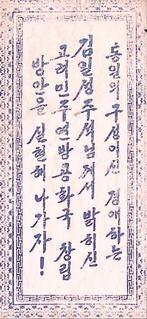 통일의 구성이신 경애하는
김일성주석님께서 밝히신
고려민주련방공화국 창립
방안을 실현해 나가자!